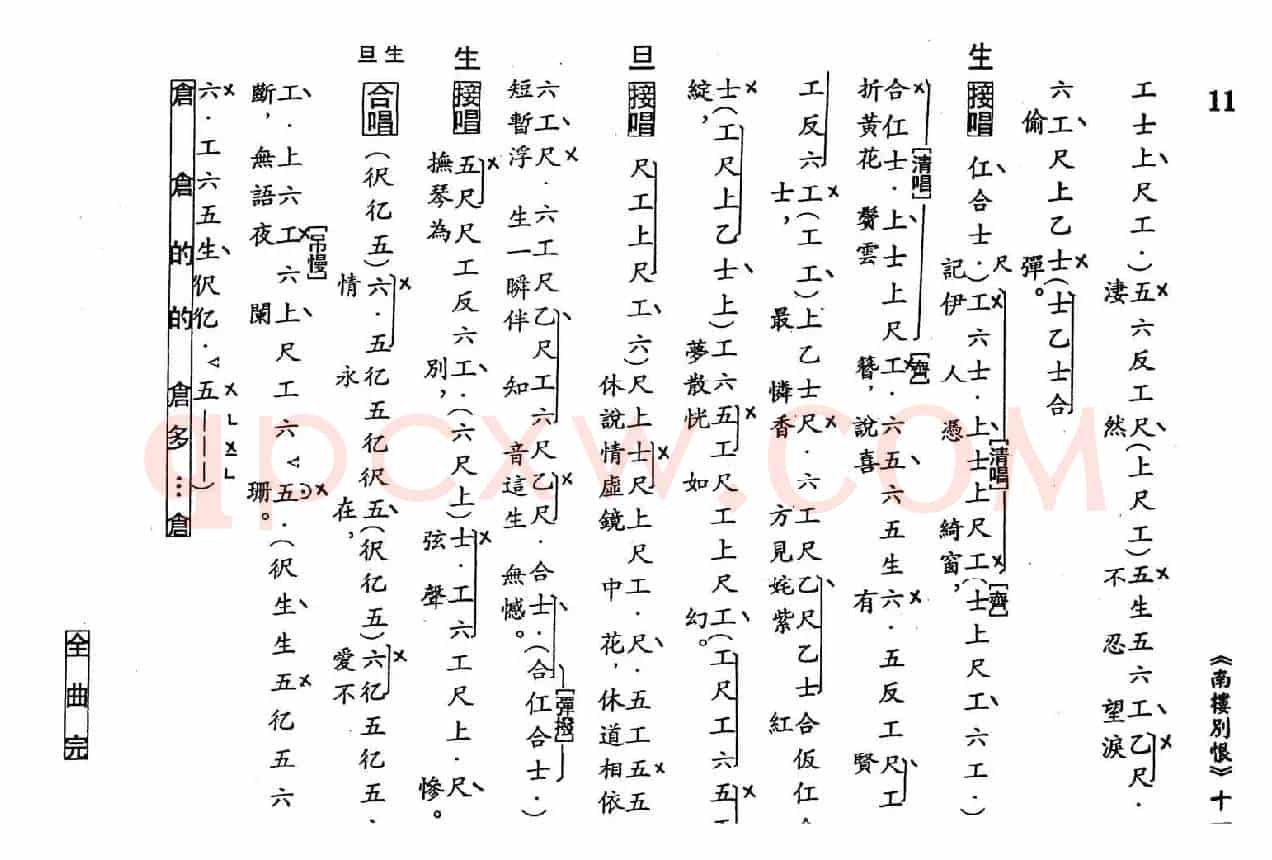 11
《南樓別恨》十一
工士上尺工．)五六反工尺(上尺工)五生五六工乙尺．
淒 然 不忍 望淚
六工尺上乙士(士乙士合
偷 彈。
生 接唱 仜合士．)尺工六士．上士上尺工(士上尺工、六工．)
記伊 人 憑 綺窗，
[清唱] [齊]
合仜士．上士上尺工．六五六五生六．五反工尺工
折黃花 鬢雲 簪，說喜 有 賢
[清唱] [齊]
工反六工(工工)上乙士尺．六工尺乙尺乙士合仮仜合
士， 最 憐香 方見姹紫 紅
士(工尺上乙士上)工六五工尺工上尺工(工尺工六五工
綻， 夢散恍 如 幻。
旦 接唱 尺工上尺工、六)尺上士尺上尺工．尺．五工五五
休說情虛鏡 中 花，休道相依
六工尺．六工尺乙尺工六尺乙尺．合士．(合仜合士．)
短暫浮 生一瞬伴 知 音這生 無憾。
[彈撥]
生 接唱 五尺尺工反六工．(六尺上)士．工六工尺上．尺
撫琴為 別， 弦聲 慘。
生旦 合唱 (伬亿五)六．五亿五亿伬五(伬亿五)六亿五亿五．
情 永 在， 愛不
工．上六工六上尺工六五．(伬生生五亿五六
斷，無語夜 闌 珊。
[吊慢]
六．工六五生伬亿．五———)
倉 倉 的 的 倉 多 … 倉
全曲完
qpcxw.COM